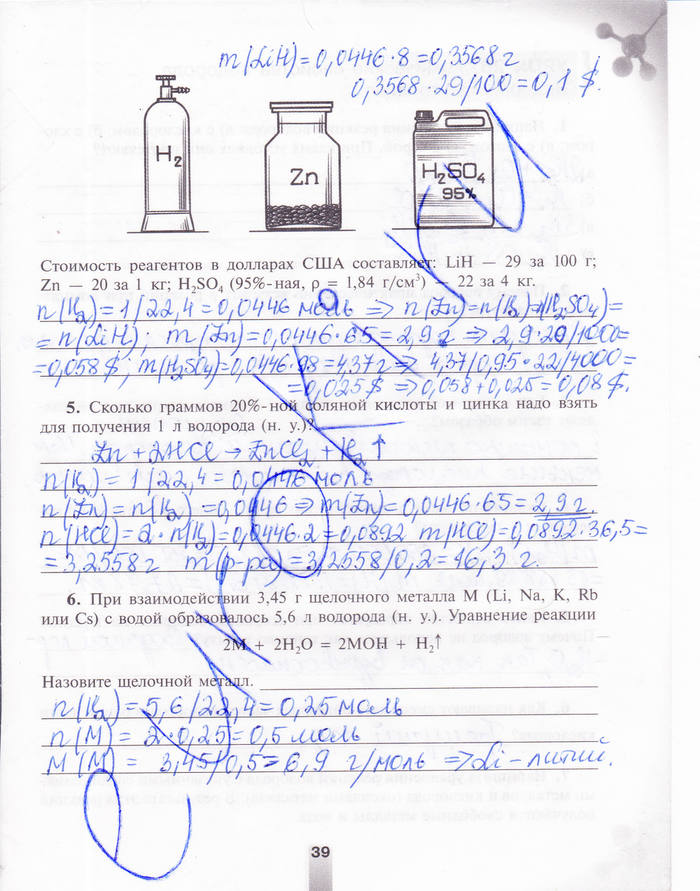 m(LiH)=0,0446·8=0,3568 г
0,3568·29/100=0,1 $.
H₂
Zn
H₂SO₄
95%
Стоимость реагентов в долларах США составляет: LiH — 29 за 100 г;
Zn — 20 за 1 кг; H₂SO₄ (95%-ная, ρ = 1,84 г/см³) — 22 за 4 кг.
n(H₂)=1/22,4=0,0446 моль ⇒ n(Zn)=n(H₂)=n(H₂SO₄)=
=n(LiH); m(Zn)=0,0446·65=2,9 г ⇒ 2,9·20/1000=
=0,058 $; m(H₂SO₄)=0,0446·98=4,37 г ⇒ 4,37/0,95·22/4000=
=0,025 $ ⇒ 0,058+0,025=0,08 $.
5. Сколько граммов 20%-ной соляной кислоты и цинка надо взять
для получения 1 л водорода (н. у.)?
Zn + 2HCl → ZnCl₂ + H₂↑
n(H₂) = 1/22,4 = 0,0446 моль
n(Zn)=n(H₂)=0,0446 ⇒ m(Zn)=0,0446·65=2,9 г.
n(HCl)=2·n(H₂)=0,0446·2=0,0892 m(HCl)=0,0892·36,5=
=3,2558 г m(р-ра)=3,2558/0,2=16,3 г.
6. При взаимодействии 3,45 г щелочного металла M (Li, Na, K, Rb
или Cs) с водой образовалось 5,6 л водорода (н. у.). Уравнение реакции
2M + 2H₂O = 2MOH + H₂↑
Назовите щелочной металл.
n(H₂) = 5,6/22,4 = 0,25 моль
n(M) = 2·0,25 = 0,5 моль
M(M) = 3,45/0,5 = 6,9 г/моль ⇒ Li - литий.
39